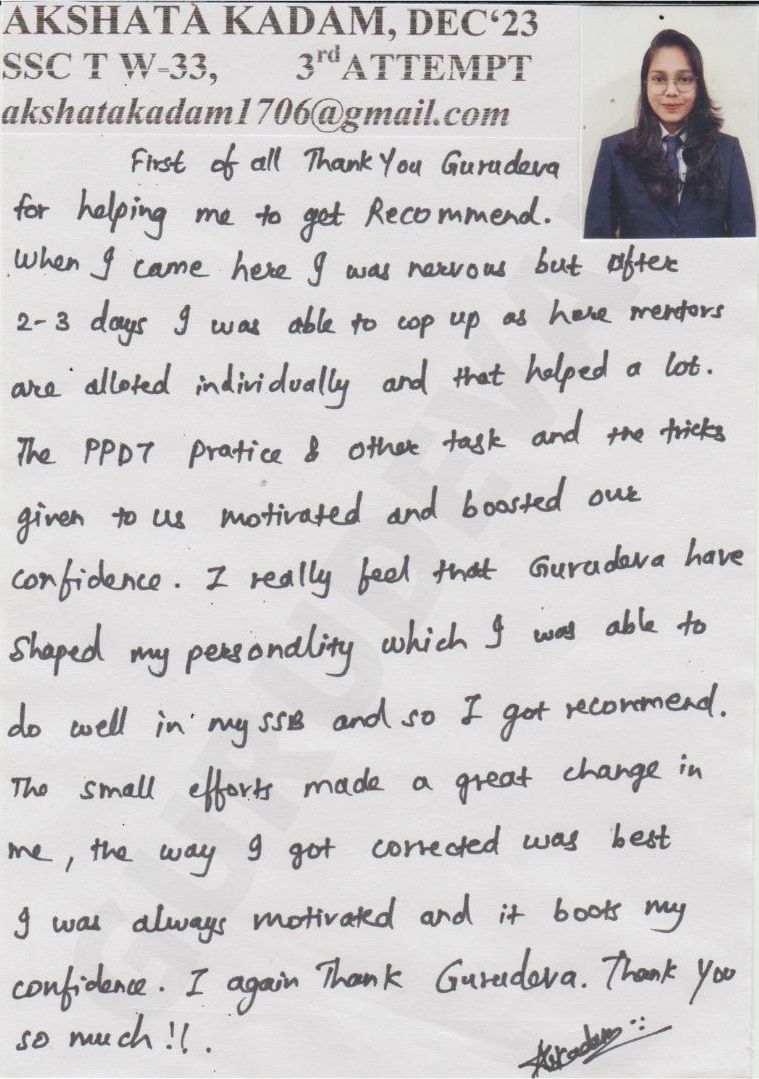 AKSHATA KADAM, DEC‘23
SSC T W-33, 3rd ATTEMPT
akshatakadam1706@gmail.com
First of all Thank You Gurudeva
for helping me to get Recommend.
When I came here I was nervous but after
2-3 days I was able to cop up as here mentors
are alloted individually and that helped a lot.
The PPDT pratice & other task and the tricks
given to us motivated and boosted our
confidence. I really feel that Gurudeva have
Shaped my personality which I was able to
do well in my SSB and so I got recommend.
The small efforts made a great change in
me, the way I got corrected was best
I was always motivated and it boots my
confidence. I again Thank Gurudeva. Thank You
so much !!.
AKadam
GURUDEVA